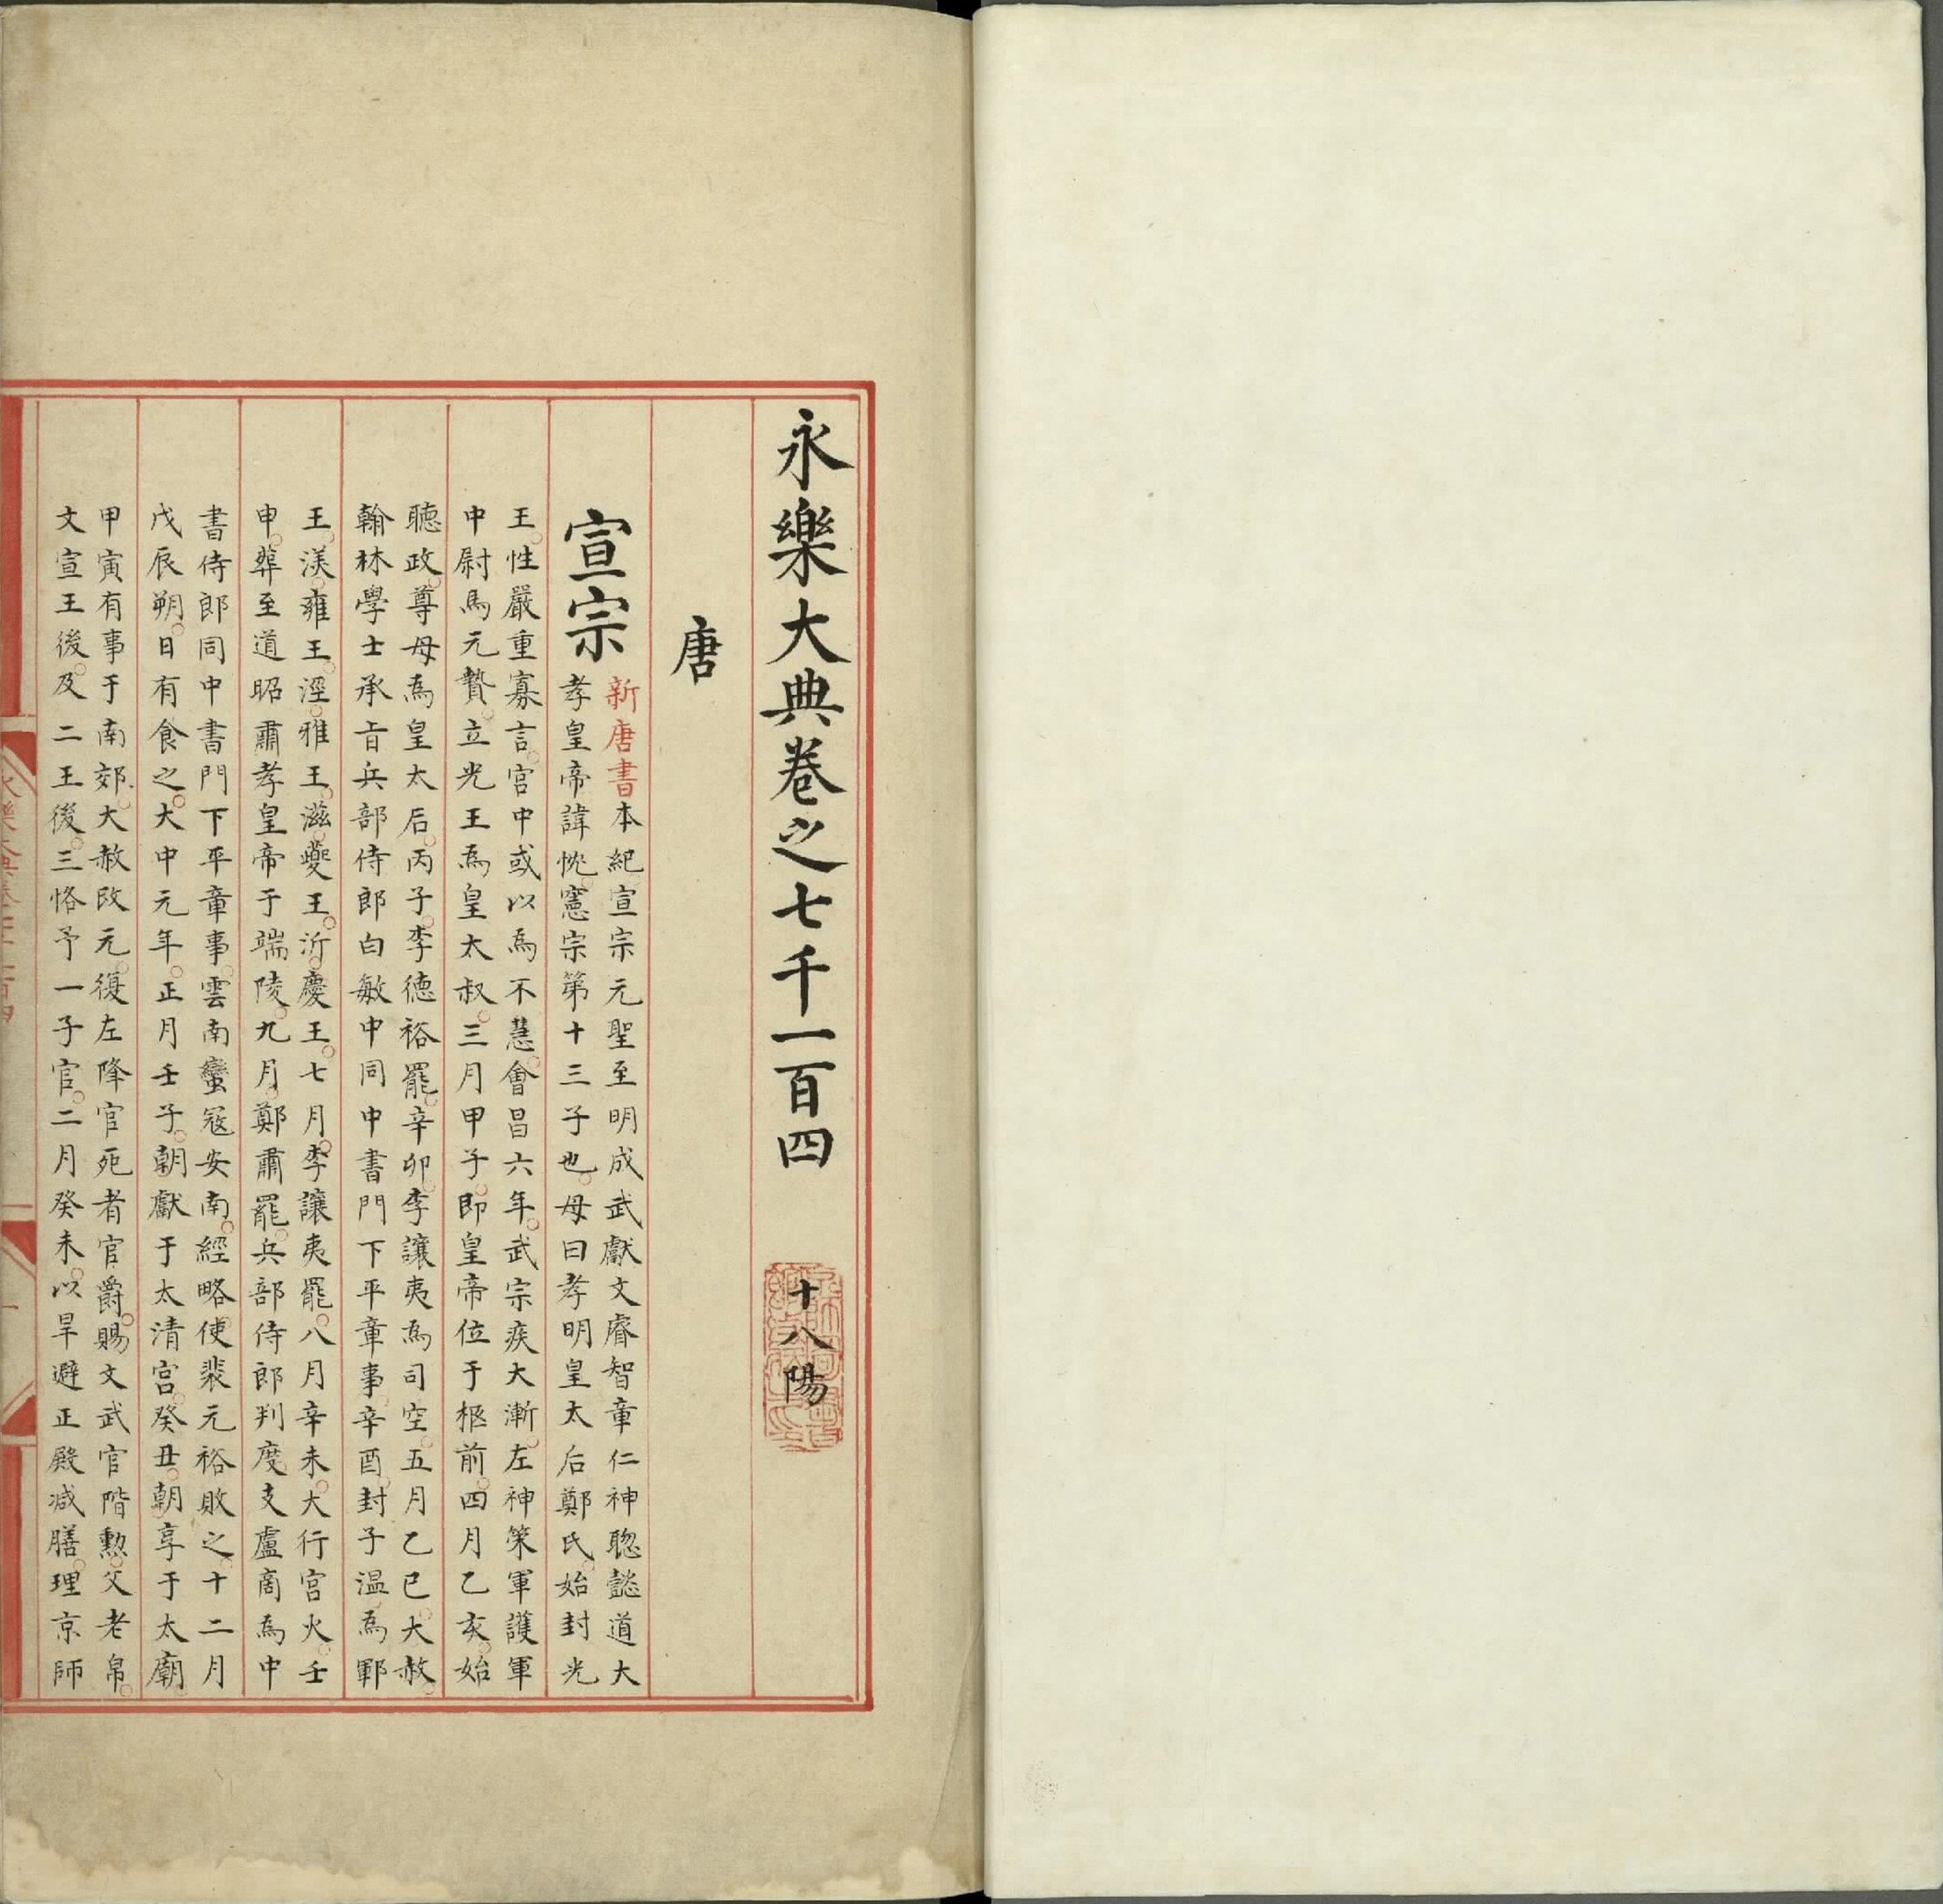 永樂大典卷之七千一百四 十八陽
唐
宣宗
新唐書本紀宣宗元聖至明成武獻文睿智章仁神聦懿道大
孝皇帝諱忱憲宗第十三子也母曰孝明皇太后鄭氏始封光
王性嚴重寡言宮中或以爲不慧會昌六年武宗疾大漸左神策軍護軍
中尉馬元贄立光王爲皇太叔三月甲子即皇帝位于柩前四月乙亥始
聽政尊母爲皇太后丙子李德裕罷辛卯李讓夷爲司空五月乙巳大赦
翰林學士承旨兵部侍郎白敏中同中書門下平章事辛酉封子温爲鄆
王渼雍王涇雅王滋夔王沂慶王七月李讓夷罷八月辛未大行宮火壬
申葬至道昭肅孝皇帝于端陵九月鄭肅罷兵部侍郎判度支盧商爲中
書侍郎同中書門下平章事雲南蠻寇安南經略使裴元裕敗之十二月
戊辰朔日有食之大中元年正月壬子朝獻于太清宮癸丑朝享于太廟
甲寅有事于南郊大赦改元復左降官死者官爵賜文武官階勲父老帛
文宣王後及二王後三恪予一子官二月癸未以旱避正殿减膳理京師